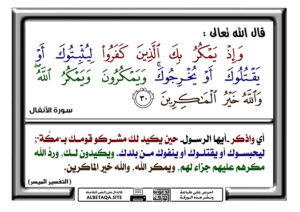 قال الله تعالى :
وَإِذْ يَمْكُرُ بِكَ الَّذِينَ كَفَرُوا لِيُثْبِتُوكَ أَوْ
يَقْتُلُوكَ أَوْ يُخْرِجُوكَ ۚ وَيَمْكُرُونَ وَيَمْكُرُ اللَّهُ ۖ
وَاللَّهُ خَيْرُ الْمَاكِرِينَ ٣٠
سورة الأنفال
أي واذكر -أيها الرسول- حين يكيد لك مشركو قومك بـ«مكة»؛
ليحبسوك أو يقتلوك أو ينفوك من بلدك. ويكيدون لك، وردَّ الله
مكرهم عليهم جزاء لهم، ويمكر الله، والله خير الماكرين.
(التفسير الميسر)
ALBETAQA.SITE
احرص على طباعة
ونشر هذه الورقة